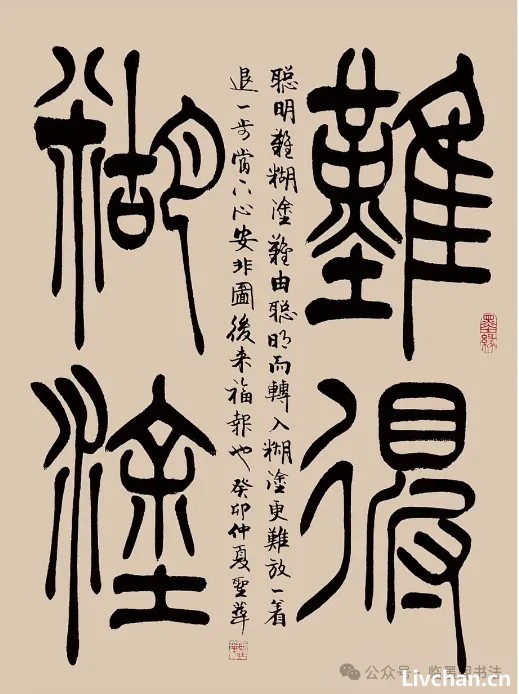 難得
糊塗
聪明難糊塗難由聪明而轉入糊塗更難放一着
退一步當下心安非圖後来福報也癸卯仲夏聖華
墨緣
公众号
书法
Livchan.cn